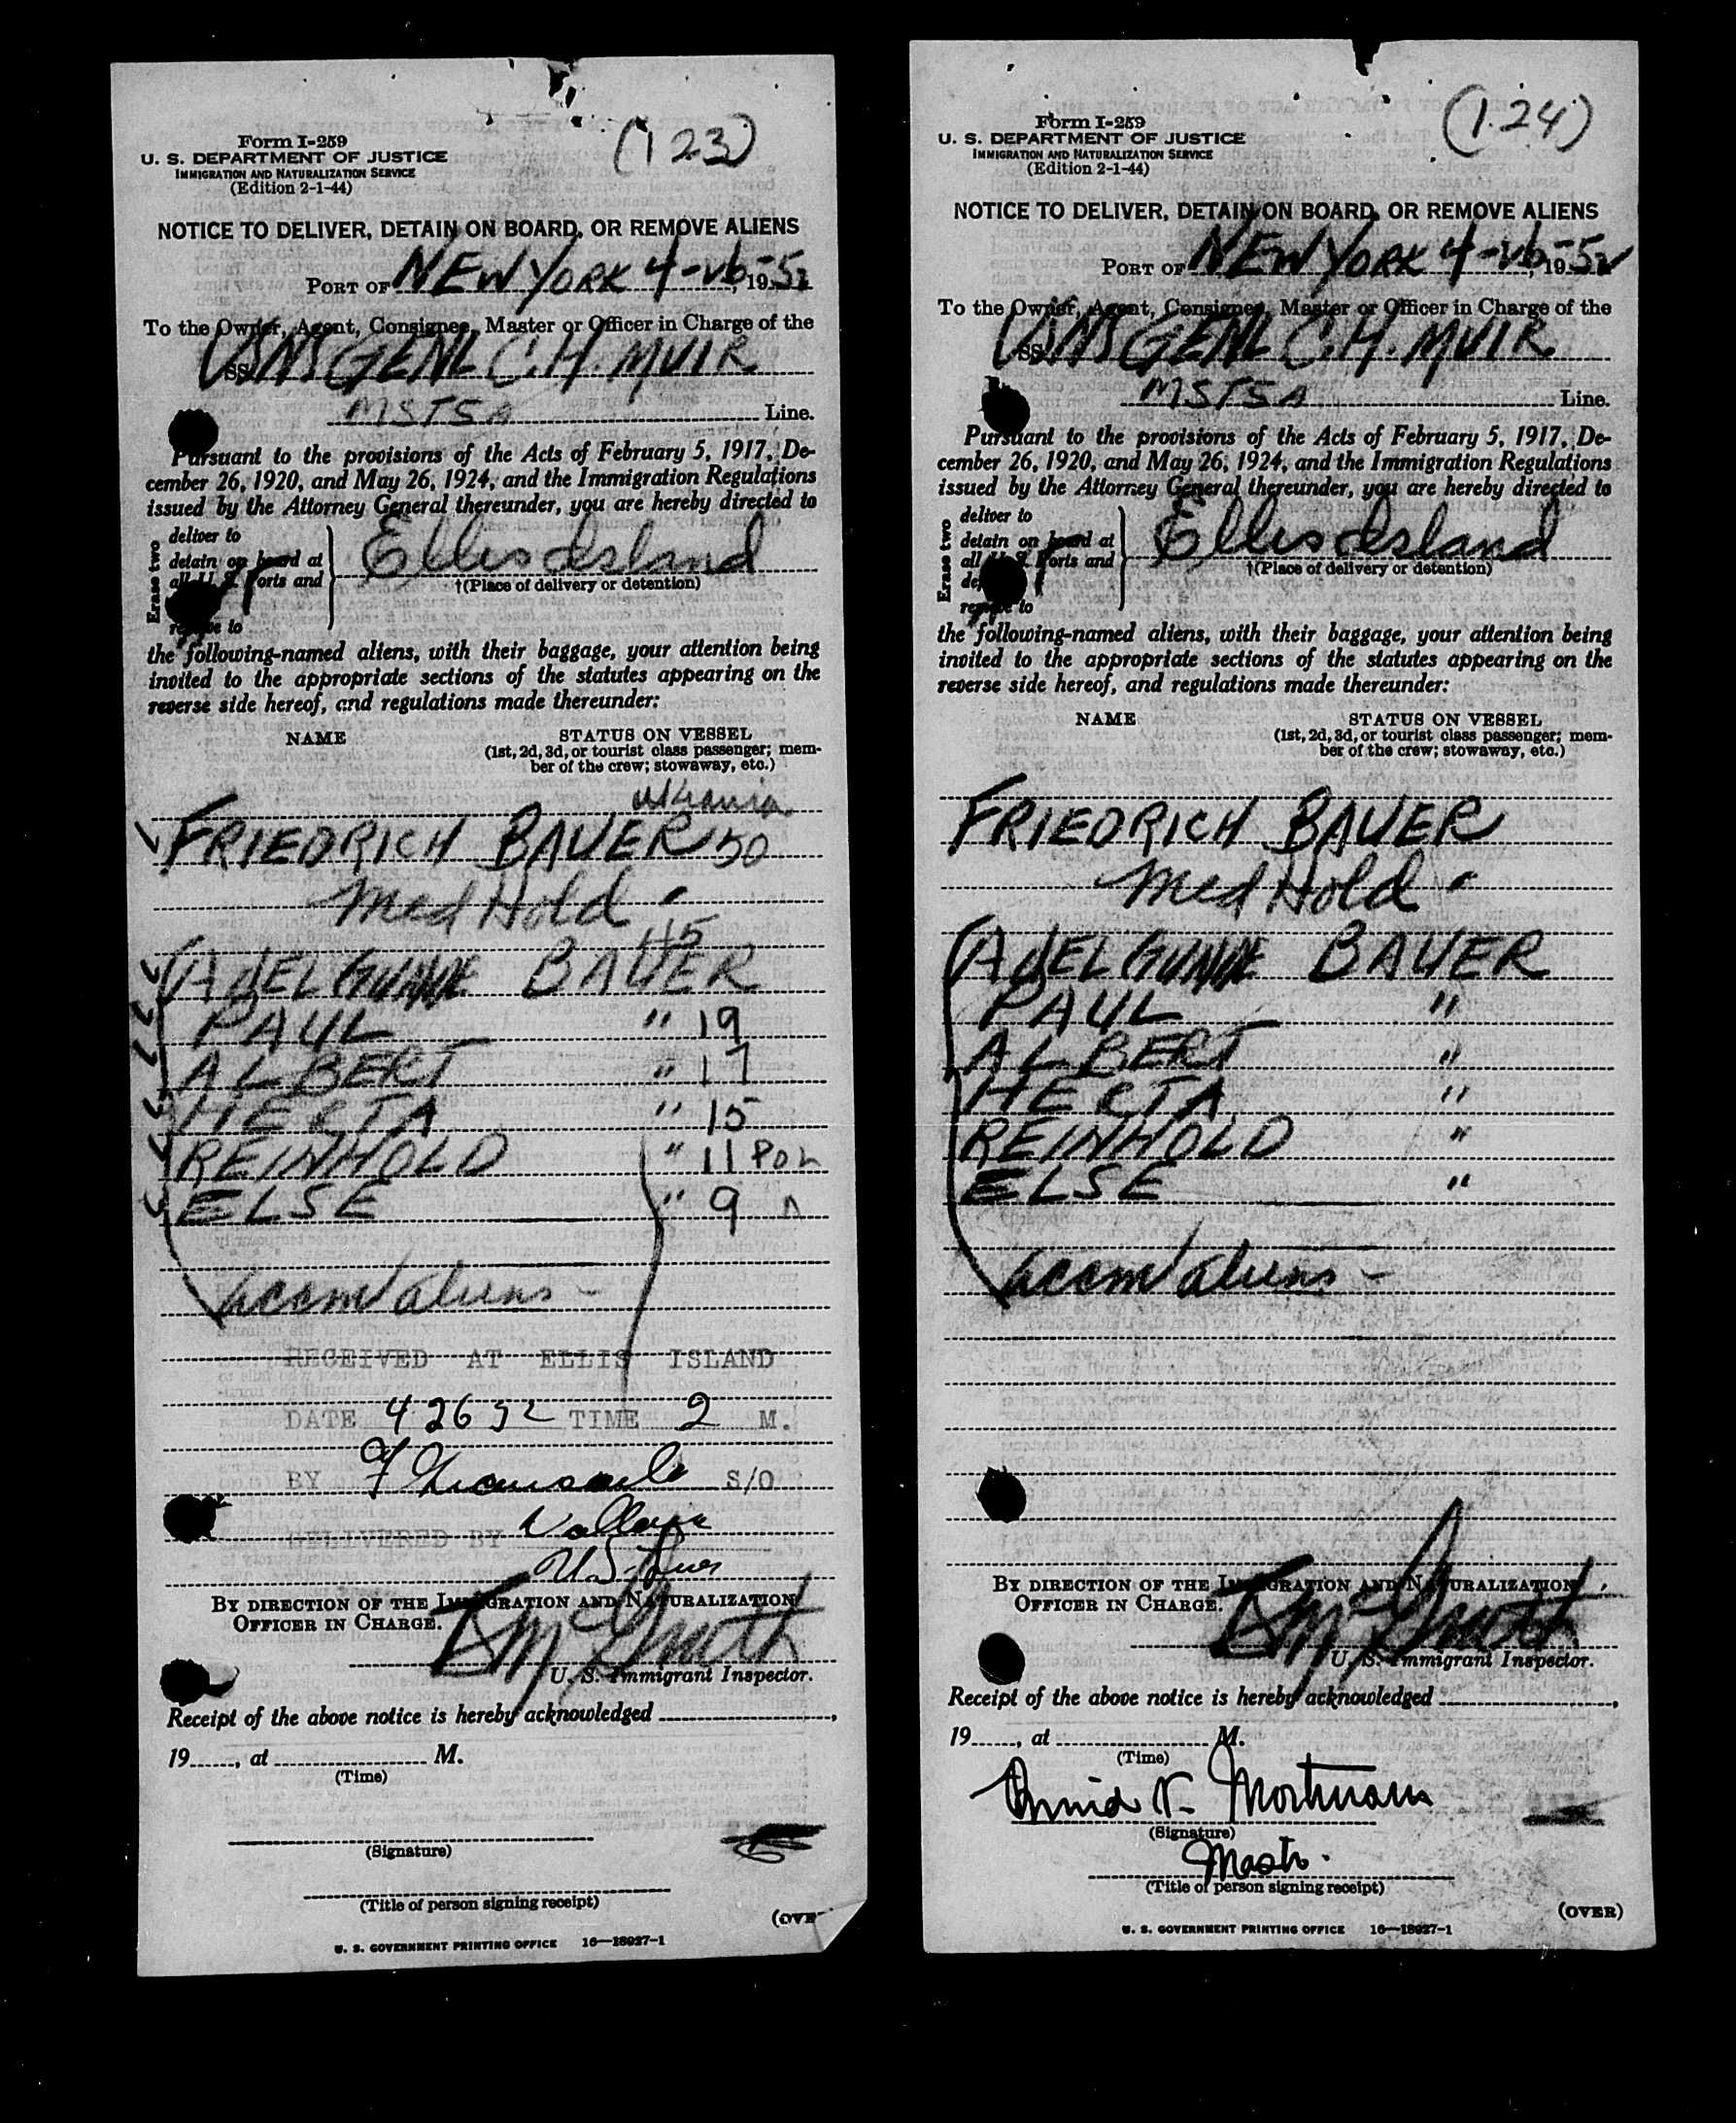 (123)
Form I-259
U. S. DEPARTMENT OF JUSTICE
IMMIGRATION AND NATURALIZATION SERVICE
(Edition 2-1-44)
NOTICE TO DELIVER, DETAIN ON BOARD, OR REMOVE ALIENS
PORT OF NEW YORK 4-26-, 1952
To the Owner, Agent, Consignee, Master or Officer in Charge of the
SS USNS GENL C. H. MUIR
MSTSA Line.
Pursuant to the provisions of the Acts of February 5, 1917, De-
cember 26, 1920, and May 26, 1924, and the Immigration Regulations
issued by the Attorney General thereunder, you are hereby directed to
Erase two
deliver to
detain on board at
all U. S. Ports and
remove to
Ellis Island
†(Place of delivery or detention)
the following-named aliens, with their baggage, your attention being
invited to the appropriate sections of the statutes appearing on the
reverse side hereof, and regulations made thereunder:
NAME STATUS ON VESSEL
(1st, 2d, 3d, or tourist class passenger; mem-
ber of the crew; stowaway, etc.)
FRIEDRICH BAUER 50
Med Hold
45
BAUER
PAUL " 19
ALBERT " 17
HERTA " 15
REINHOLD " 11 POL
ELSE " 9
Accom aliens -
RECEIVED AT ELLIS ISLAND
DATE 4 26 52 TIME 2 M.
BY S/O
DELIVERED BY
BY DIRECTION OF THE IMMIGRATION AND NATURALIZATION
OFFICER IN CHARGE.
U. S. Immigrant Inspector.
Receipt of the above notice is hereby acknowledged ,
19 , at M.
(Time)
(Signature)
(Title of person signing receipt)
(OVE
U. S. GOVERNMENT PRINTING OFFICE 16—18927-1
(124)
Form I-259
U. S. DEPARTMENT OF JUSTICE
IMMIGRATION AND NATURALIZATION SERVICE
(Edition 2-1-44)
NOTICE TO DELIVER, DETAIN ON BOARD, OR REMOVE ALIENS
PORT OF NEW YORK 4-26-, 1952
To the Owner, Agent, Consignee, Master or Officer in Charge of the
SS USNS GENL C. H. MUIR
MSTSA Line.
Pursuant to the provisions of the Acts of February 5, 1917, De-
cember 26, 1920, and May 26, 1924, and the Immigration Regulations
issued by the Attorney General thereunder, you are hereby directed to
Erase two
deliver to
detain on board at
all U. S. Ports and
remove to
Ellis Island
†(Place of delivery or detention)
the following-named aliens, with their baggage, your attention being
invited to the appropriate sections of the statutes appearing on the
reverse side hereof, and regulations made thereunder:
NAME STATUS ON VESSEL
(1st, 2d, 3d, or tourist class passenger; mem-
ber of the crew; stowaway, etc.)
FRIEDRICH BAUER
Med Hold
BAUER
PAUL "
ALBERT "
HERTA "
REINHOLD "
ELSE "
Accom aliens -
BY DIRECTION OF THE IMMIGRATION AND NATURALIZATION
OFFICER IN CHARGE.
U. S. Immigrant Inspector.
Receipt of the above notice is hereby acknowledged ,
19 , at M.
(Time)
(Signature)
(Title of person signing receipt)
(OVER)
U. S. GOVERNMENT PRINTING OFFICE 16—18927-1